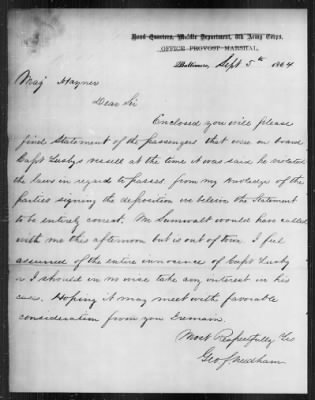 Head Quarters, Middle Department, 8th Army Corps,
OFFICE PROVOST MARSHAL,
Baltimore, Sept 5th 1864
Maj Hayner
Dear Sir
Enclosed you will please
find Statement of the passengers that were on board
Capt Lusbys vessell at the time it was said he violated
the laws in regard to passes, from my knowledge of the
parties signing the deposition we believe the Statement
to be entirely correct. Mr Sumwalt would have called
with me this afternoon but is out of town. I feel
assured of the entire innocence of Capt Lusby
or I should in no wise take any interest in his
case. Hoping it may meet with favorable
consideration from you I remain.
Most Respectfully Yrs
Geo Needham